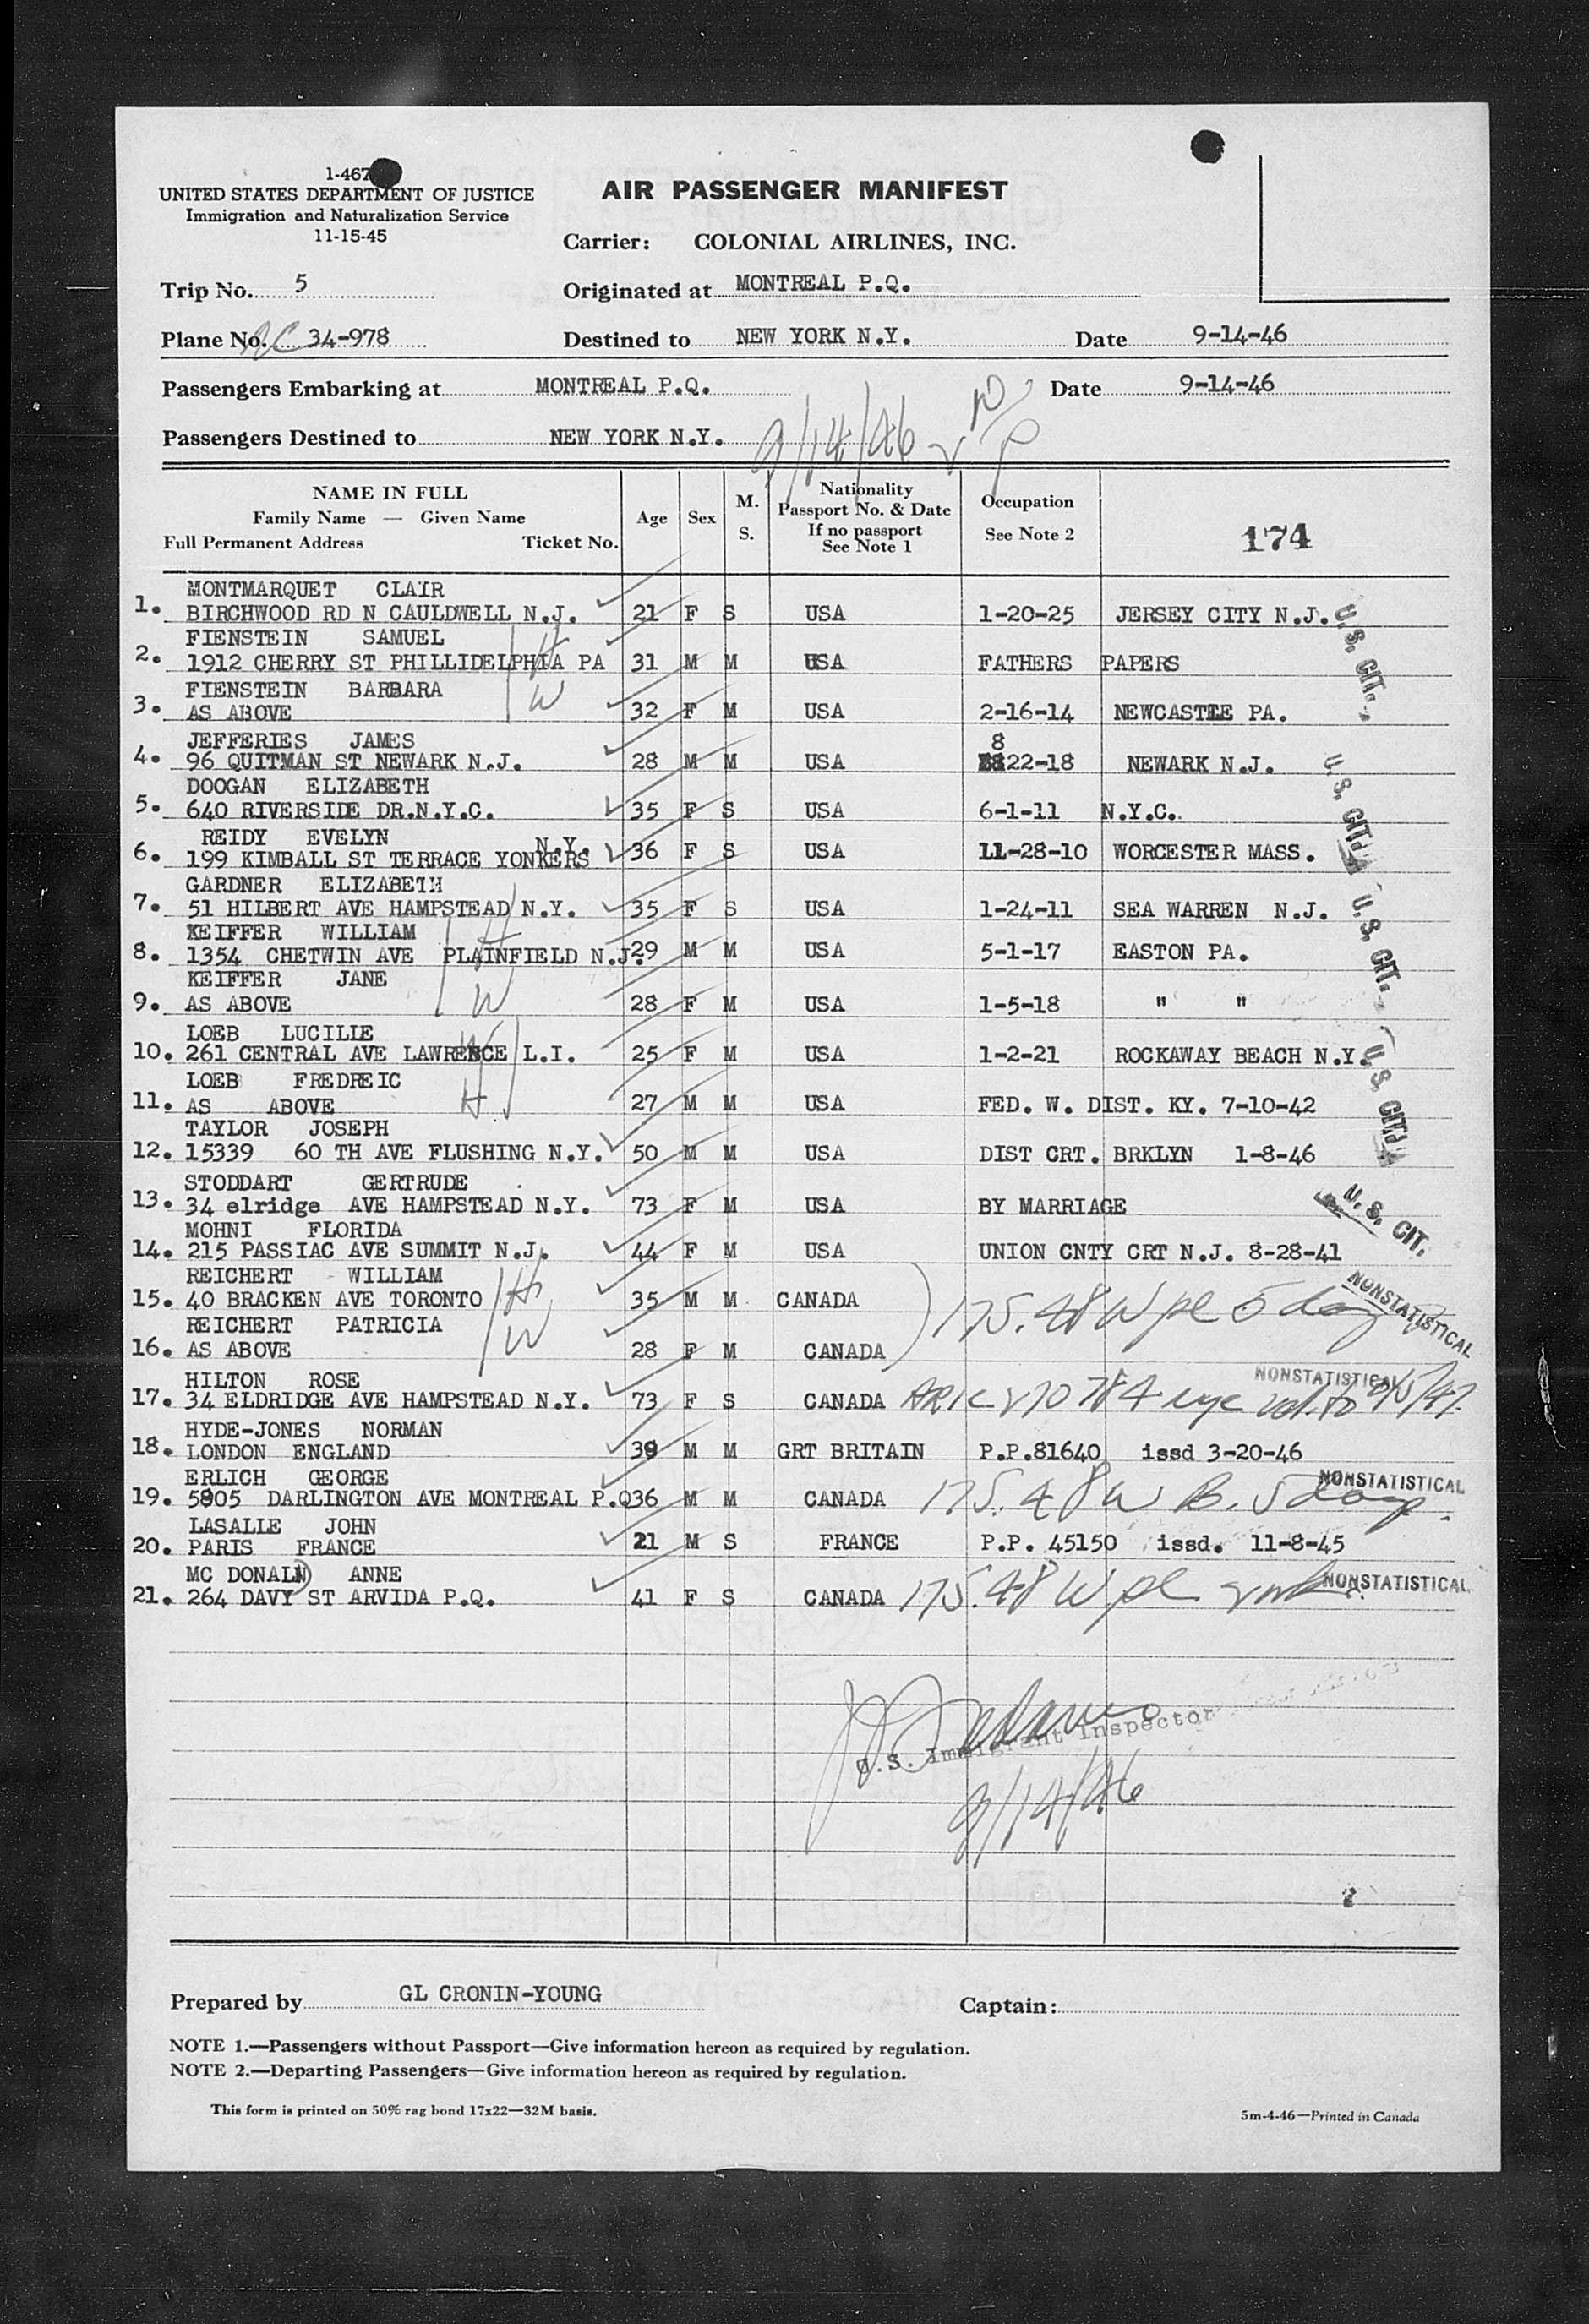 1-467
UNITED STATES DEPARTMENT OF JUSTICE
Immigration and Naturalization Service
11-15-45
AIR PASSENGER MANIFEST
Carrier: COLONIAL AIRLINES, INC.
Trip No. 5 Originated at MONTREAL P.Q.
Plane No. NC 34-978 Destined to NEW YORK N.Y. Date 9-14-46
Passengers Embarking at MONTREAL P.Q. Date 9-14-46
Passengers Destined to NEW YORK N.Y. 9/14/46
NAME IN FULL
Family Name — Given Name
Full Permanent Address Ticket No.
Age Sex M. S.
Nationality
Passport No. & Date
If no passport
See Note 1
Occupation
See Note 2
174
MONTMARQUET CLAIR
1. BIRCHWOOD RD N CAULDWELL N.J. 21 F S USA 1-20-25 JERSEY CITY N.J. U.S. CIT.
FIENSTEIN SAMUEL H
2. 1912 CHERRY ST PHILLIDELPHIA PA 31 M M USA FATHERS PAPERS
FIENSTEIN BARBARA W
3. AS ABOVE 32 F M USA 2-16-14 NEWCASTLE PA.
JEFFERIES JAMES 8
4. 96 QUITMAN ST NEWARK N.J. 28 M M USA 22-18 NEWARK N.J. U.S. CIT.
DOOGAN ELIZABETH
5. 640 RIVERSIDE DR.N.Y.C. 35 F S USA 6-1-11 N.Y.C.
REIDY EVELYN N.Y.
6. 199 KIMBALL ST TERRACE YONKERS 36 F S USA 11-28-10 WORCESTER MASS.
GARDNER ELIZABETH
7. 51 HILBERT AVE HAMPSTEAD N.Y. 35 F S USA 1-24-11 SEA WARREN N.J. U.S. CIT.
KEIFFER WILLIAM H
8. 1354 CHETWIN AVE PLAINFIELD N.J. 29 M M USA 5-1-17 EASTON PA.
KEIFFER JANE W
9. AS ABOVE 28 F M USA 1-5-18 " "
LOEB LUCILLE W
10. 261 CENTRAL AVE LAWRENCE L.I. 25 F M USA 1-2-21 ROCKAWAY BEACH N.Y. U.S. CIT.
LOEB FREDREIC H
11. AS ABOVE 27 M M USA FED. W. DIST. KY. 7-10-42
TAYLOR JOSEPH
12. 15339 60 TH AVE FLUSHING N.Y. 50 M M USA DIST CRT. BRKLYN 1-8-46
STODDART GERTRUDE
13. 34 elridge AVE HAMPSTEAD N.Y. 73 F M USA BY MARRIAGE U.S. CIT.
MOHNI FLORIDA
14. 215 PASSIAC AVE SUMMIT N.J. 44 F M USA UNION CNTY CRT N.J. 8-28-41
REICHERT WILLIAM H
15. 40 BRACKEN AVE TORONTO 35 M M CANADA 175.48 W pl 5 day NONSTATISTICAL
REICHERT PATRICIA W
16. AS ABOVE 28 F M CANADA
HILTON ROSE NONSTATISTICAL
17. 34 ELDRIDGE AVE HAMPSTEAD N.Y. 73 F S CANADA
HYDE-JONES NORMAN
18. LONDON ENGLAND 39 M M GRT BRITAIN P.P.81640 issd 3-20-46
ERLICH GEORGE NONSTATISTICAL
19. 5805 DARLINGTON AVE MONTREAL P.Q 36 M M CANADA 175.48 W B. 5 day
LASALLE JOHN
20. PARIS FRANCE 21 M S FRANCE P.P. 45150 issd. 11-8-45
MC DONALD ANNE
21. 264 DAVY ST ARVIDA P.Q. 41 F S CANADA 175.48 W pl NONSTATISTICAL
U.S. Immigrant Inspector
9/14/46
Prepared by GL CRONIN-YOUNG Captain:
NOTE 1.—Passengers without Passport—Give information hereon as required by regulation.
NOTE 2.—Departing Passengers—Give information hereon as required by regulation.
This form is printed on 50% rag bond 17x22—32M basis.
5m-4-46—Printed in Canada